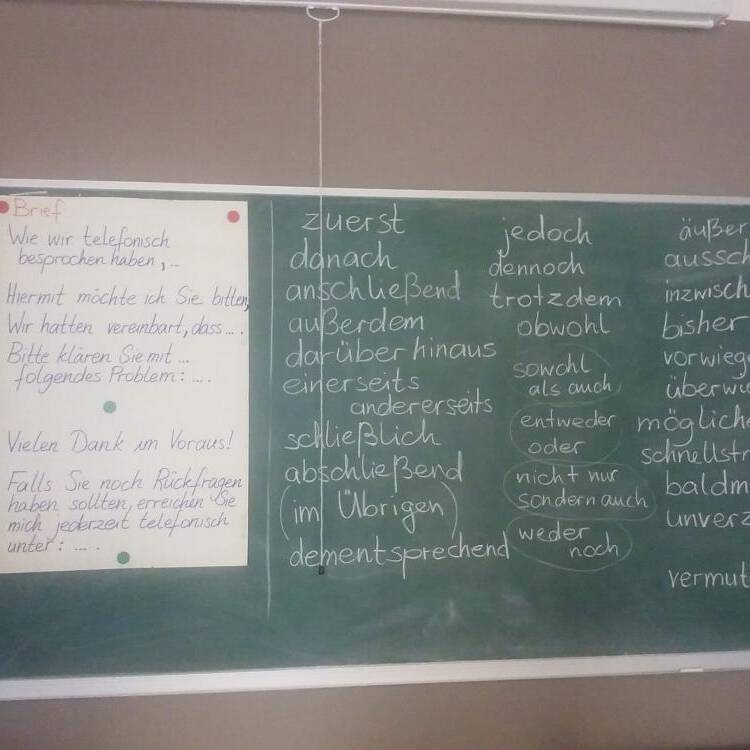 Brief
Wie wir telefonisch
besprochen haben, ...
Hiermit möchte ich Sie bitten,
Wir hatten vereinbart, dass ... .
Bitte klären Sie mit ...
folgendes Problem: ... .
Vielen Dank im Voraus!
Falls Sie noch Rückfragen
haben sollten, erreichen Sie
mich jederzeit telefonisch
unter: ... .
zuerst
danach
anschließend
außerdem
darüber hinaus
einerseits
andererseits
schließlich
abschließend
(im Übrigen)
dementsprechend
jedoch
dennoch
trotzdem
obwohl
sowohl
als auch
entweder
oder
nicht nur
sondern auch
weder
noch
bisher